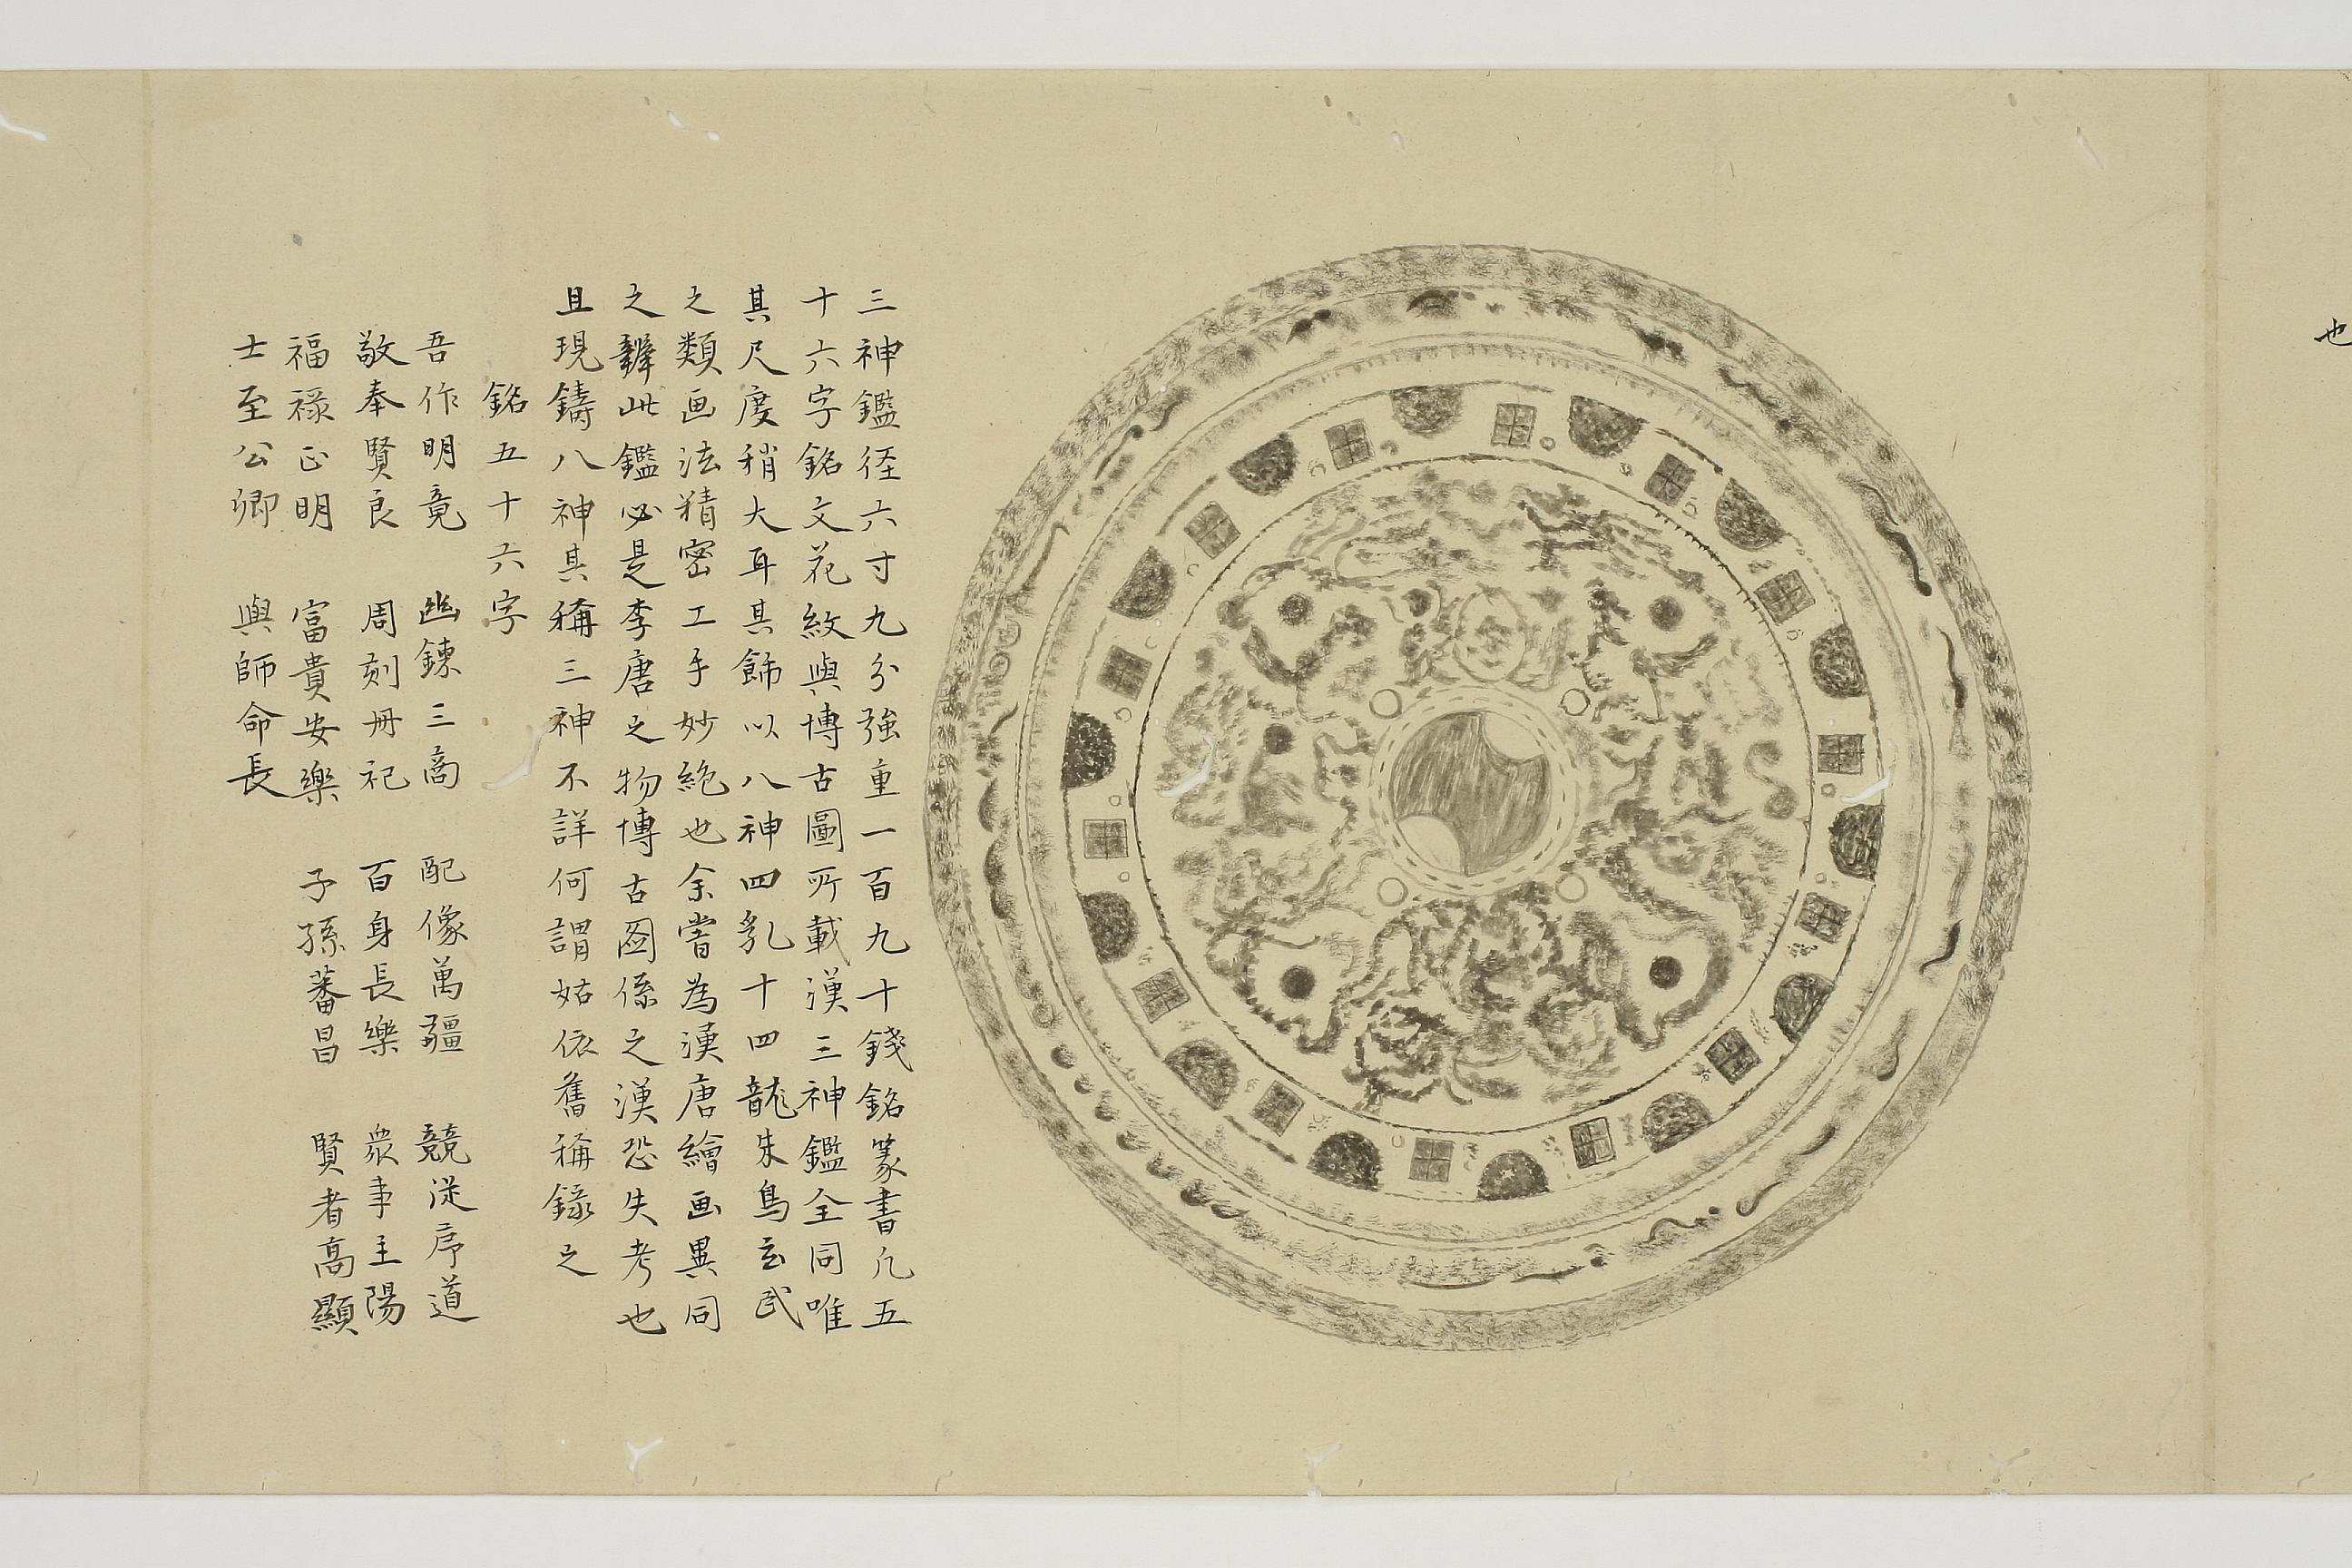 也
三神鑑径六寸九分強重一百九十錢銘篆書凢五
十六字銘文花紋與博古圖所載漢三神鑑全同唯
其尺度稍大耳其飾以八神四乳十四龍朱鳥玄武
之類画法精密工手妙絶也余嘗為漢唐繪画異同
之辨此鑑必是李唐之物博古圖係之漢恐失考也
且現鑄八神其稱三神不詳何謂姑依舊稱錄之
銘五十六字
吾作明竟　幽鍊三商　配像萬疆　競從序道
敬奉賢良　周刻冊祀　百身長樂　衆事主陽
福禄正明　富貴安樂　子孫蕃昌　賢者高顯
士至公卿　與師命長